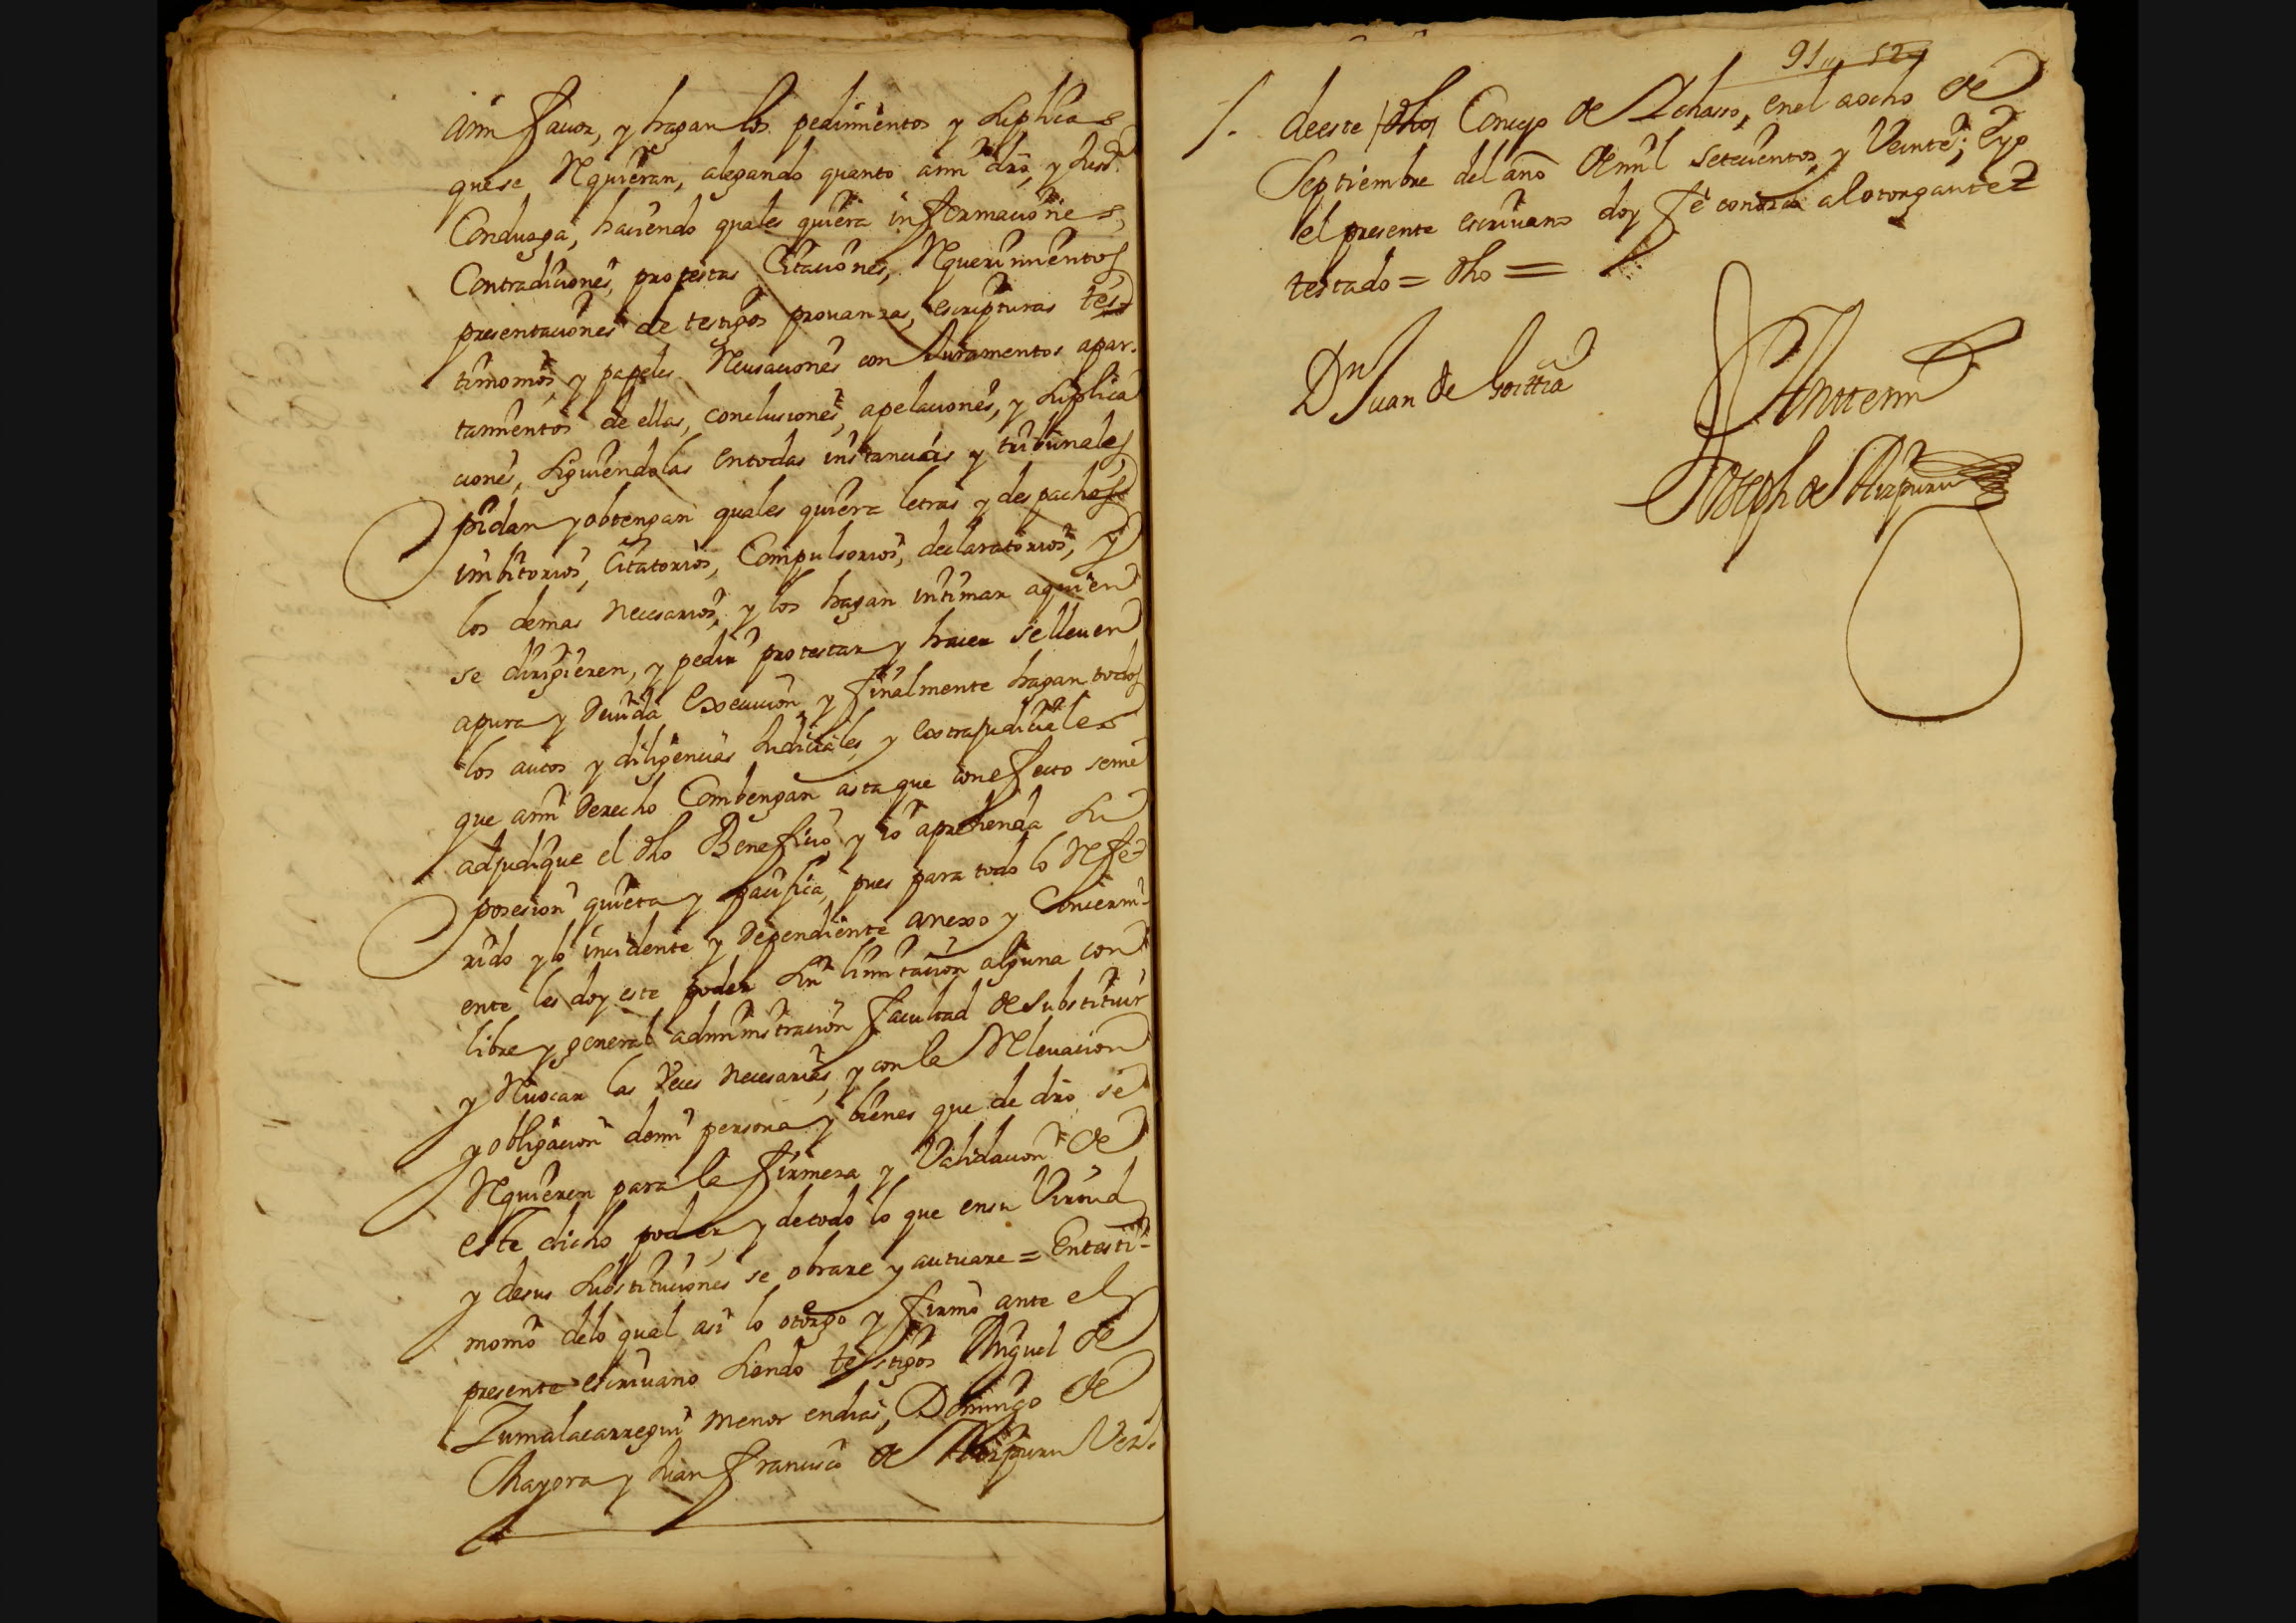 ami favor, y hagan los pedimientos y suplicas
que se requieran, alegando quanto ami dro, y Just.ª
Conduzga, haciendo quales quiera informaciones,
Contradiciones, protestas Citaciones, requerimientos
presentaciones de testigos provanzas, escripturas tes-
timonios, y papeles recusaciones con Juramentos apar-
tamientos de ellas, conclusiones, apelaciones, y suplica
ciones, siguiendolas entodas instancias y tribunales
pidan y obtengan quales quiera letras y despachos
imbitorios, Citatorios, Compulsorios, declaratorios, y
los demas necesarios, y los hagan intimar aquien
se dirigieren, y pedir protestar y hacer se lleven
apura y devida execucion y finalmente hagan todos
los autos y diligencias Judiciales, y extrajudiciales
que ami derecho Combengan asta que con efecto seme
adjudique el dho Beneficio, y io aprehenda su
posesion quieta y pacifica, pues para todo lo refe-
rido y lo incidente y dependiente anexo y Concerni-
ente les doy este poder sin limitacion alguna con
libre y general administracion facultad de substituir
y revocar las veces necesarias, y con la relevacion
y obligacion demi persona y bienes que de dro se
requieren para la firmeza y Validacion de
este dicho poder y detodo lo que ensu Virtud
y desus substituciones se obrare y autuare = Entesti-
monio delo qual asi lo otorgo y firmo ante el
presente escrivano siendo testigos Miguel de
Zumalacarregui menor endias, Domingo de
Mayora y Juan francisco de Aizpuru Vez.s
91,, 52
deeste dho Concejo de Astigarreta, enel aocho de
Septiembre del año de mil setecientos, y Veinte; E yo
el presente escrivano doy fe conozco al otorgante
testado = dho =
Dn Juan de Goittia
Antemi
Joseph de Aizpuru